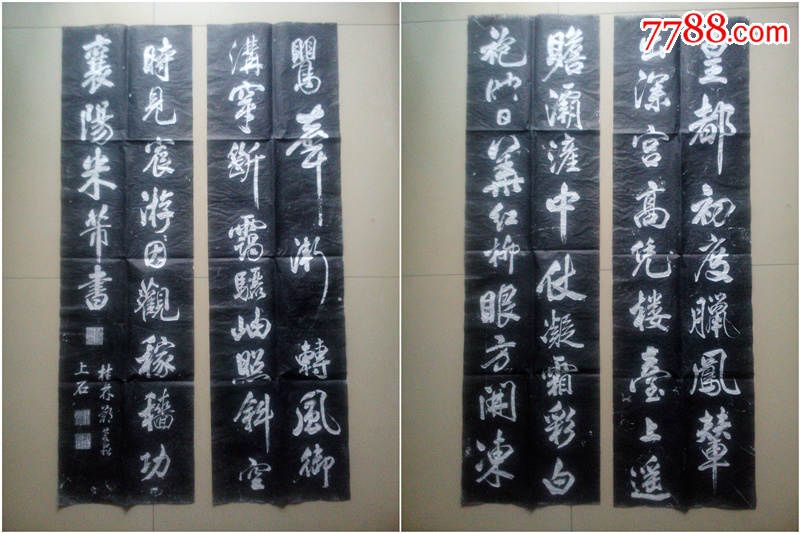 7788.com
皇都初度臘鳳輦
出深宮高凭楼臺上遥
瞻灞滻中仗凝霜彩白
袍映日華紅柳眼方開凍
鸎聲漸轉風御
溝穿斷靄驪岫照斜空
時見宸游因觀稼穡功
襄陽米芾書
上石